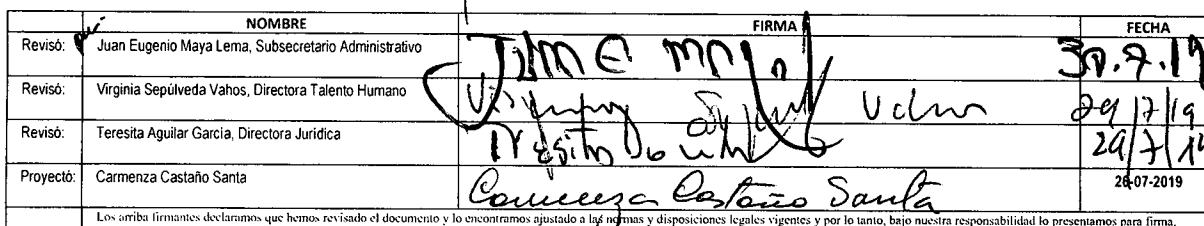 NOMBRE FIRMA FECHA
Revisó: Juan Eugenio Maya Lema, Subsecretario Administrativo 30.7.19
Revisó: Virginia Sepúlveda Vahos, Directora Talento Humano 29/7/19
Revisó: Teresita Aguilar García, Directora Jurídica 29/7/19
Proyectó: Carmenza Castaño Santa Carmenza Castaño Santa 26-07-2019
Los arriba firmantes declaramos que hemos revisado el documento y lo encontramos ajustado a las normas y disposiciones legales vigentes y por lo tanto, bajo nuestra responsabilidad lo presentamos para firma.